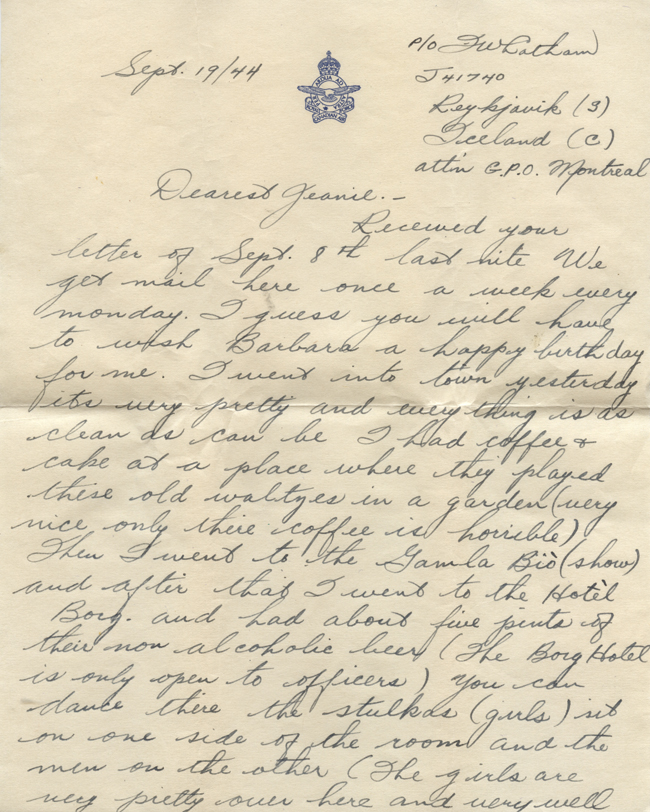 Sept. 19/44
P/O F W Latham
J41740
Reykjavik (3)
Iceland (C)
att'n G.P.O. Montreal
Dearest Jeanie. –
Received your
letter of Sept. 8th last nite We
get mail here once a week every
monday. I guess you will have
to wish Barbara a happy birthday
for me. I went into town yesterday
its very pretty and everything is as
clean as can be I had coffee &
cake at a place where they played
these old waltzes in a garden (very
nice only there coffee is horrible)
Then I went to the Gamla Biò (show)
and after that I went to the Hotèl
Borg. and had about five pints of
their non alcoholic beer (The Borg Hotel
is only open to officers) You can
dance there the stulkas (girls) sit
on one side of the room and the
men on the other (The girls are
very pretty over here and very well